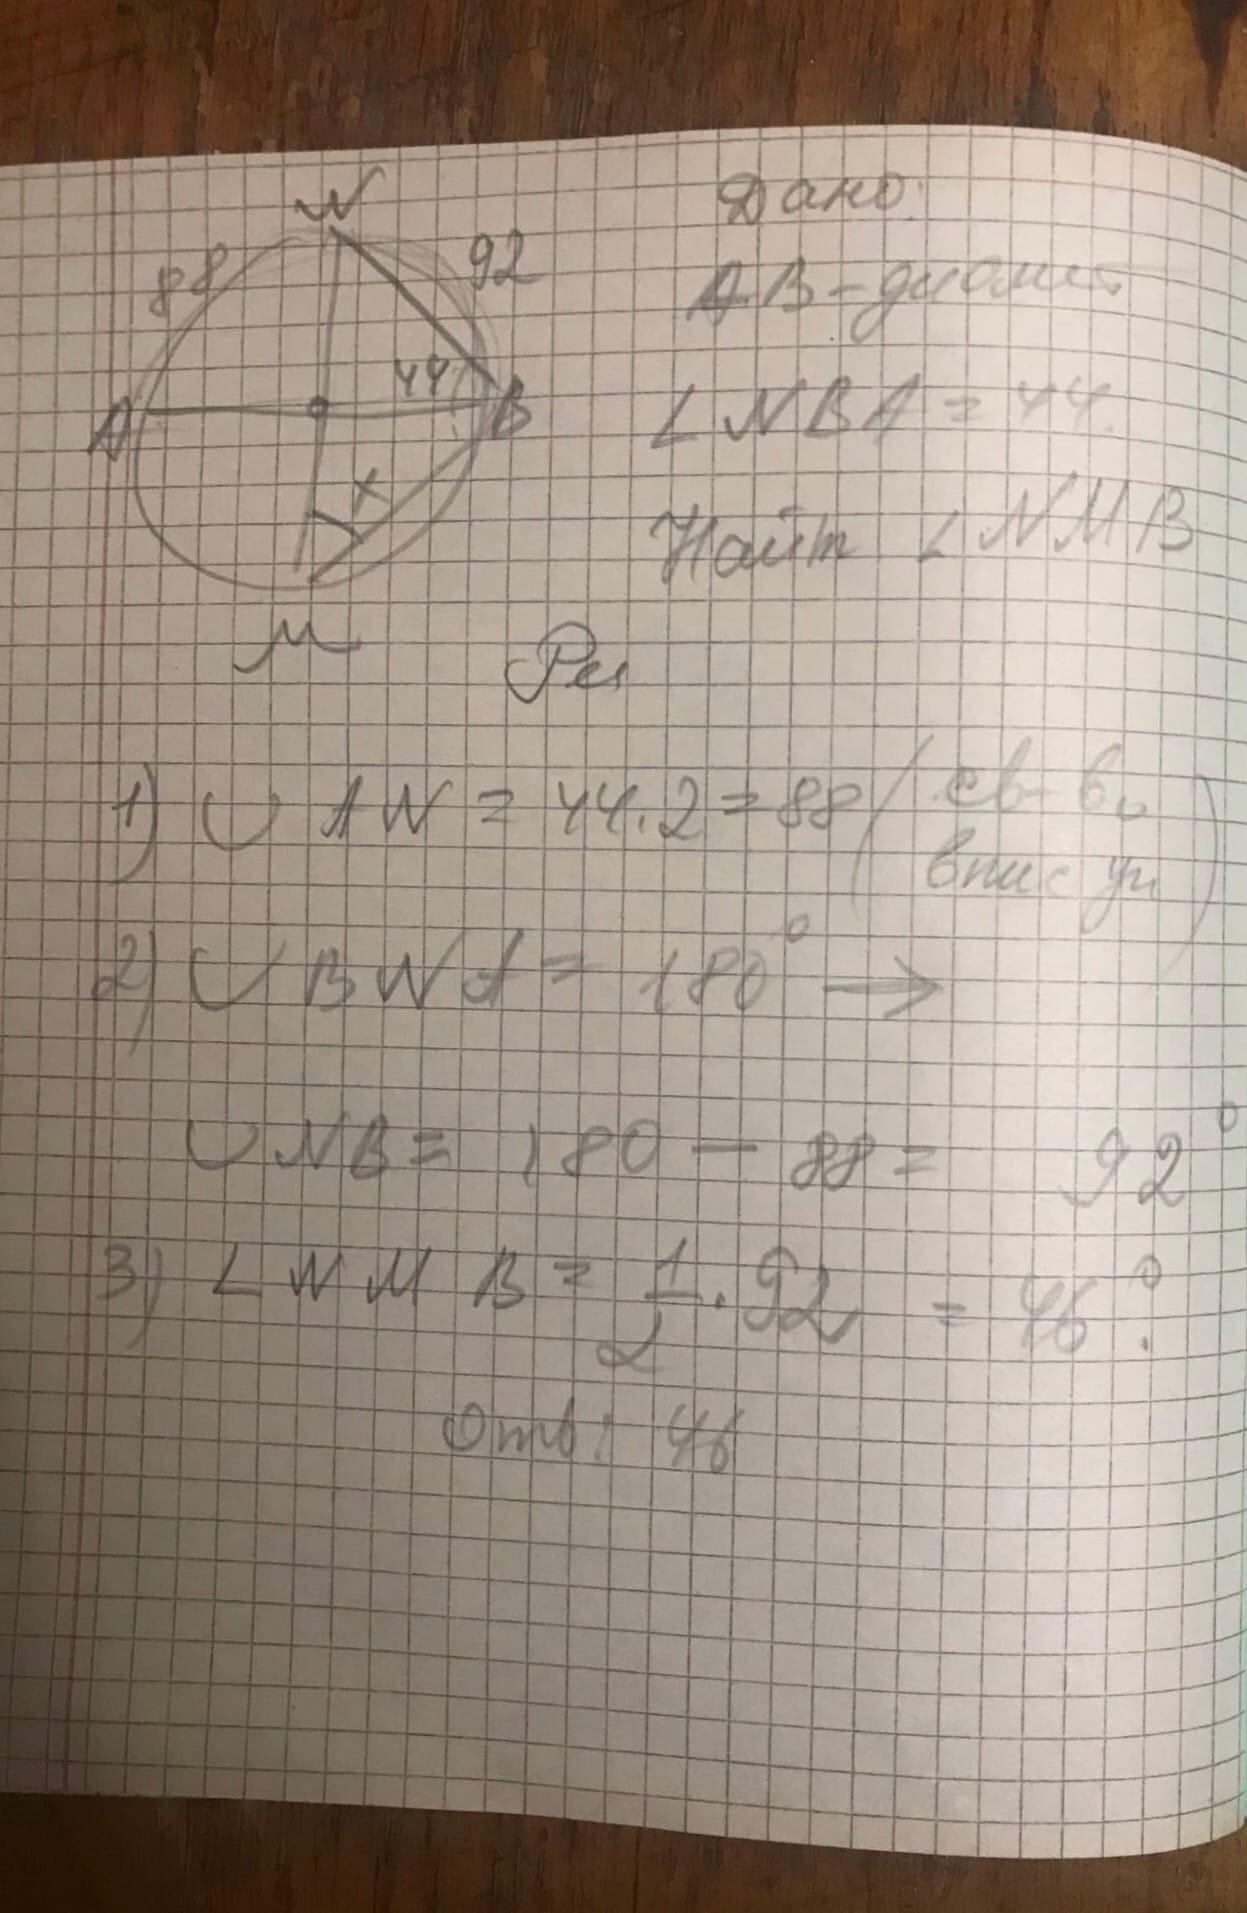 N
88
92
44
A
B
x
M
Дано:
AB - диамет
∠NBA = 44.
Найт ∠NMB
Реш
1) ◡ AN = 44.2 = 88 (св-во
впис уг)
2) ◡ BNA = 180° →
◡ NB = 180 - 88 = 92°
3) ∠NMB = 1/2 · 92 = 46°.
Отв: 46